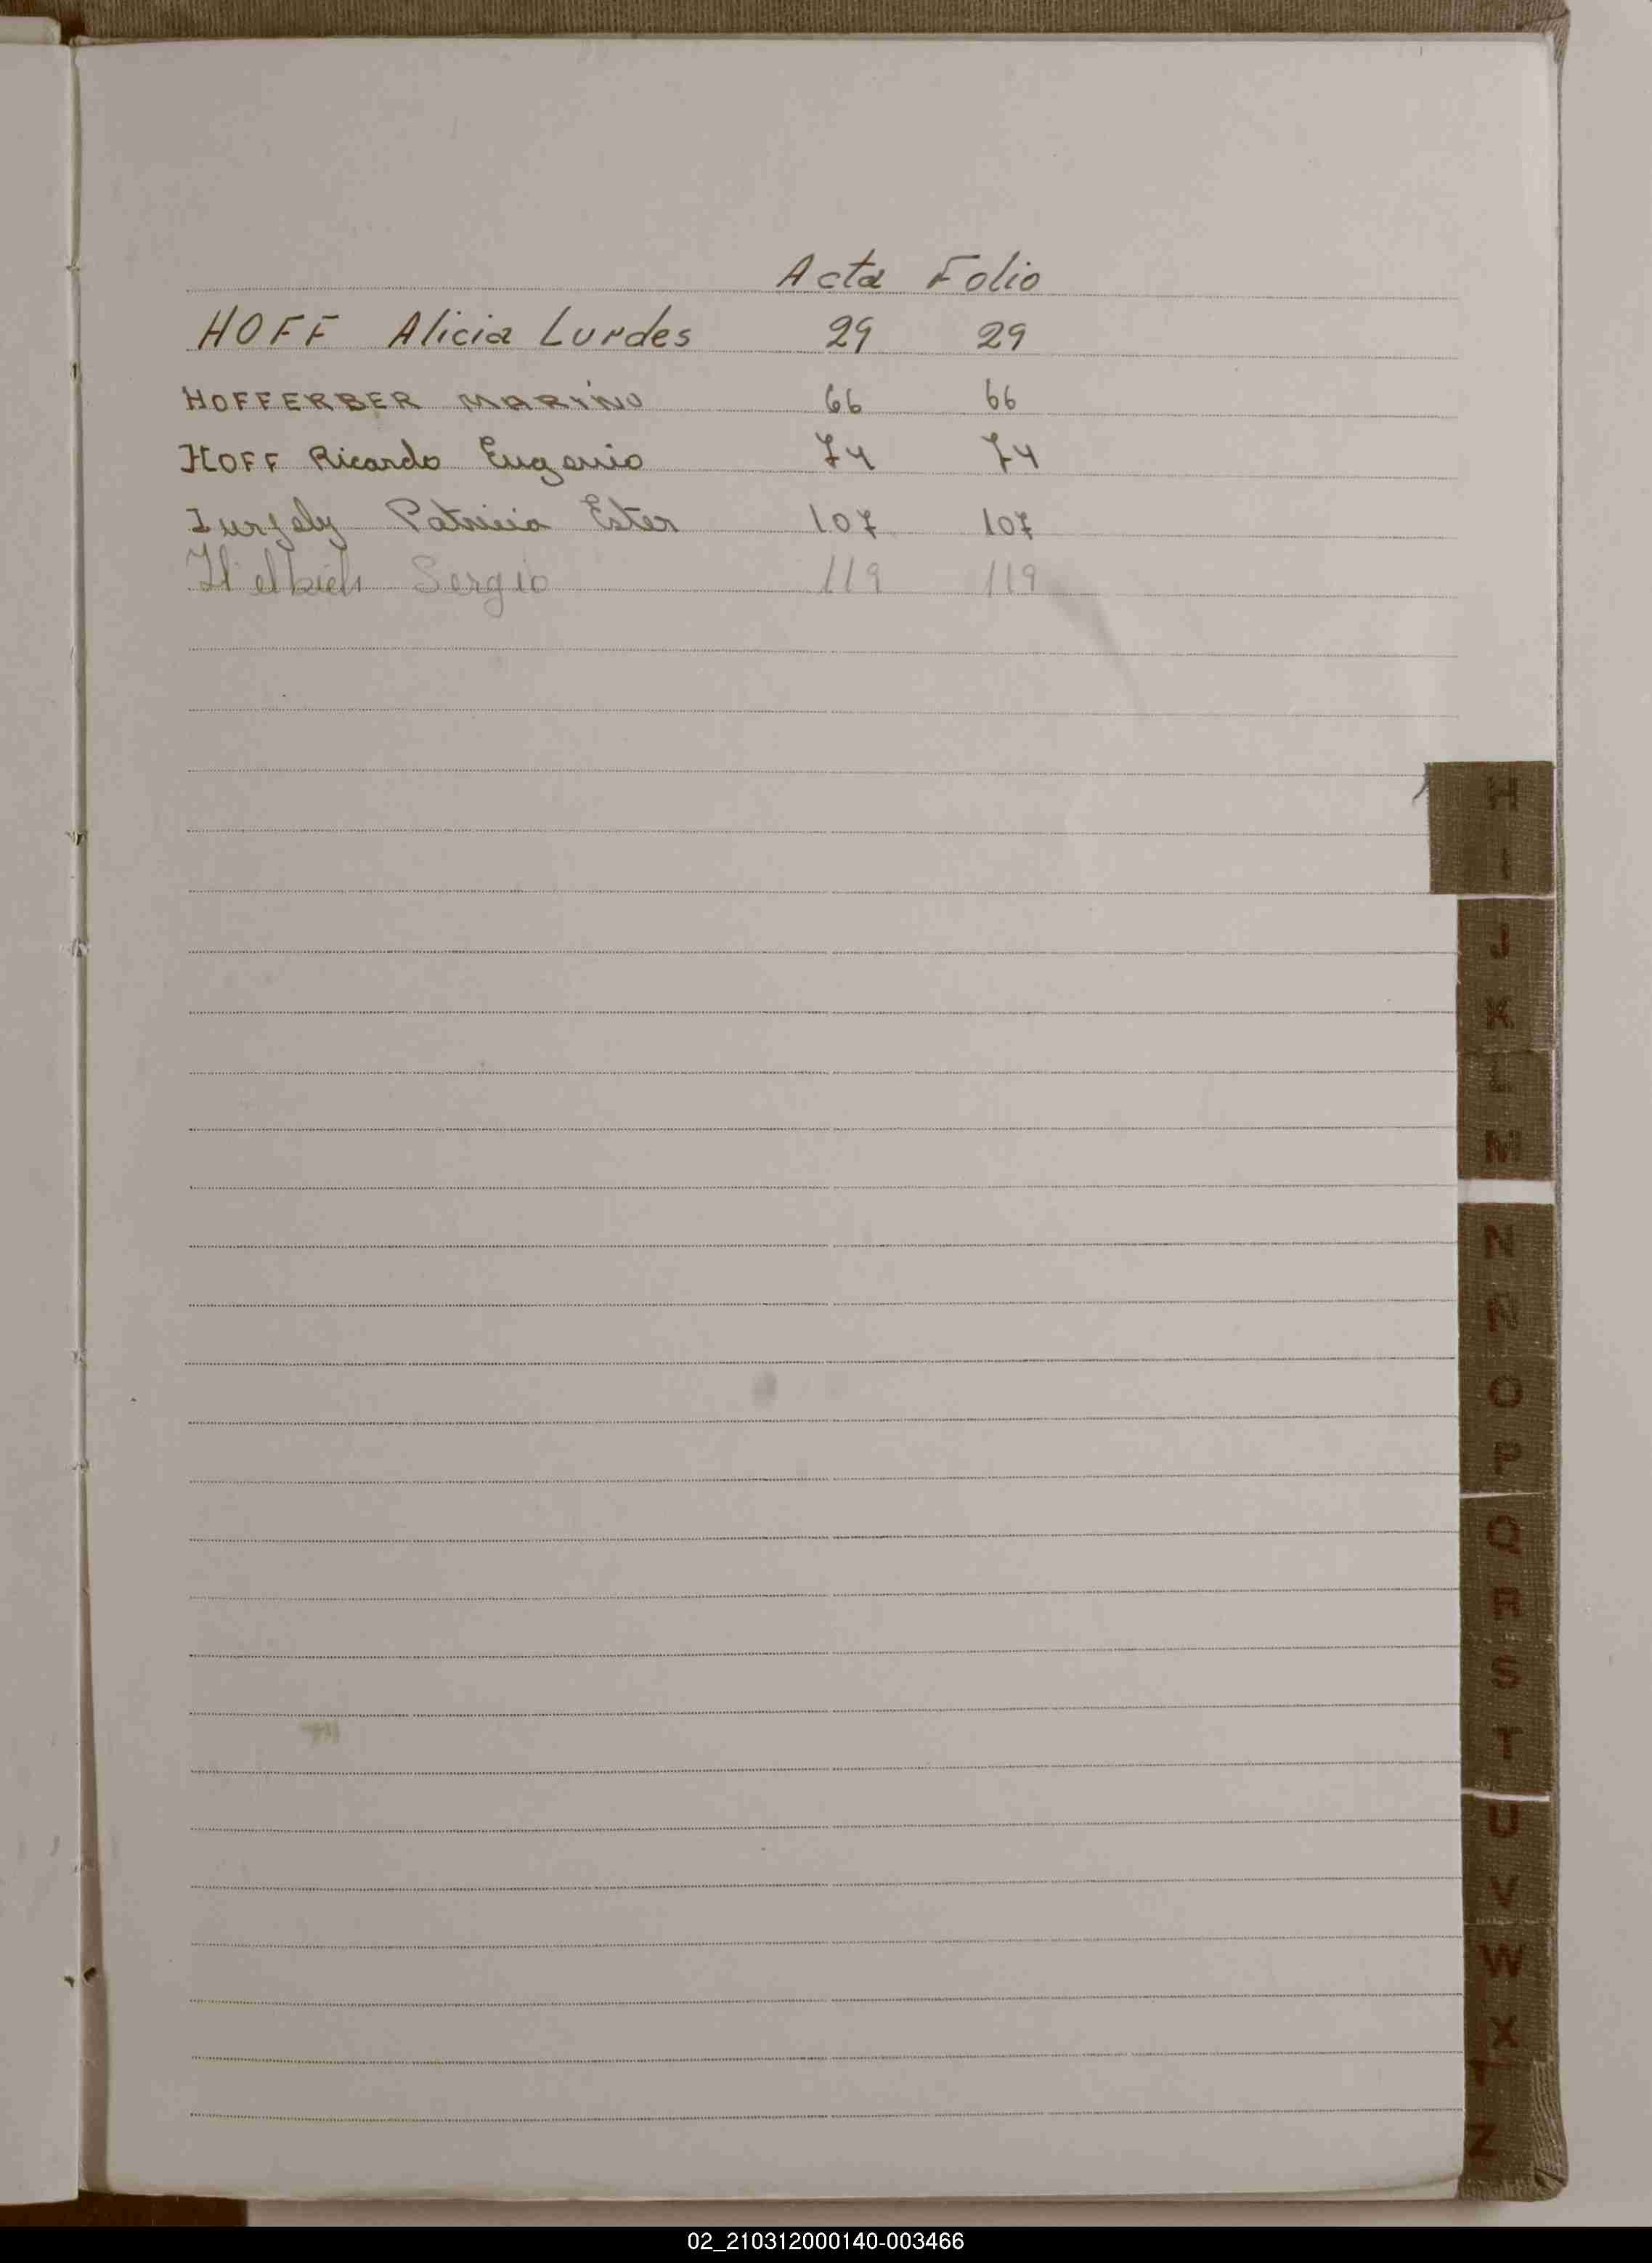 Acta Folio
HOFF Alicia Lurdes 29 29
HOFFERBER MARINO 66 66
HOFF Ricardo Eugenio 74 74
Patricia Ester 107 107
Sergio 119 119
H
I
J
K
L
M
N
Ñ
O
P
Q
R
S
T
U
V
W
X
Y
Z
02_210312000140-003466